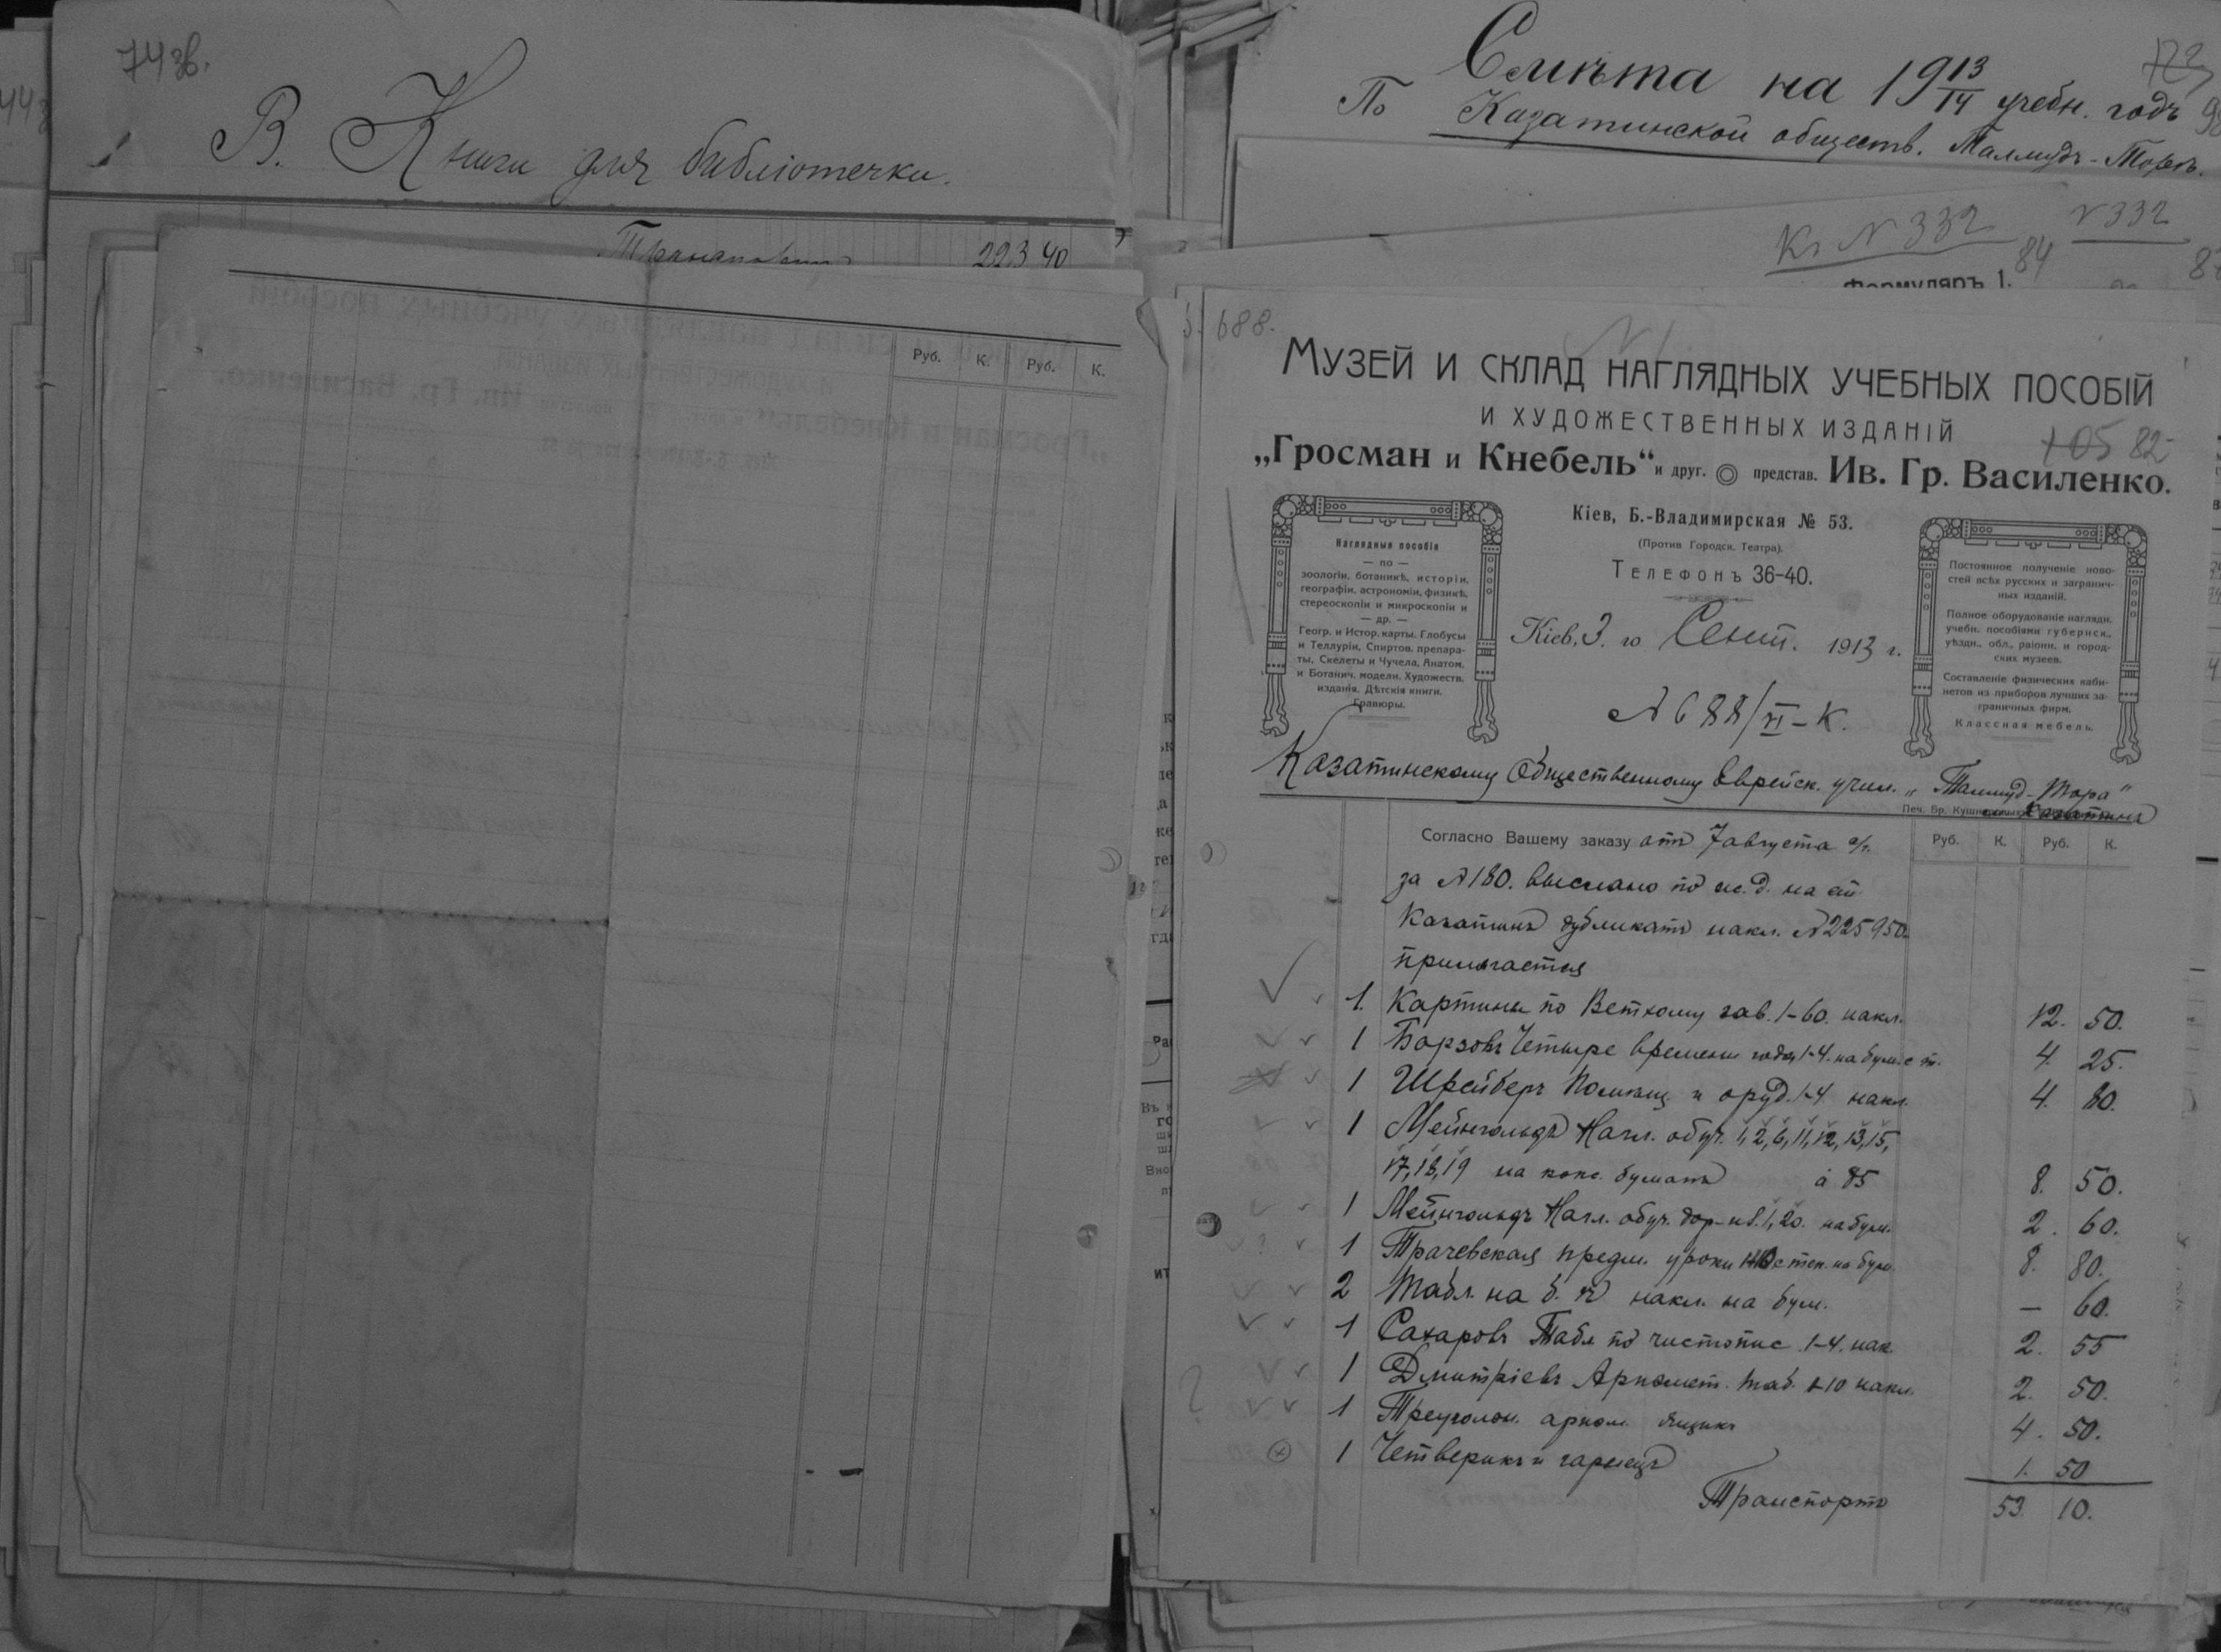 74 зв.
В. Книги для библіотечки.
Транспортъ 223 40
Руб. К. Руб. К.
Смѣта на 1913/14 учебн. годъ
По Казатинской обществ. Талмудъ-Торѣ.
Къ № 332
№ 332
84
Формуляръ 1.
688.
МУЗЕЙ И СКЛАД НАГЛЯДНЫХ УЧЕБНЫХ ПОСОБІЙ
И ХУДОЖЕСТВЕННЫХ ИЗДАНІЙ
105 82
„Гросман и Кнебель“ и друг. представ. Ив. Гр. Василенко.
Кіев, Б.-Владимирская № 53.
(Против Городск. Театра).
ТЕЛЕФОНЪ 36-40.
Наглядныя пособія
— по —
зоологіи, ботаникѣ, исторіи,
географіи, астрономіи, физикѣ,
стереоскопіи и микроскопіи и
— др. —
Геогр. и Истор. карты. Глобусы
и Теллуріи, Спиртов. препара-
ты, Скелеты и Чучела, Анатом.
и Ботанич. модели. Художеств.
изданія. Дѣтскія книги.
Гравюры.
Постоянное полученіе ново-
стей всѣх русских и загранич-
ных изданій.
Полное оборудованіе наглядн.
учебн. пособіями губернск.,
уѣздн., обл., раіонн. и город-
ских музеев.
Составленіе физических каби-
нетов из приборов лучших за-
граничных фирм.
Классная мебель.
Кіев, 3. го Сент. 1913 г.
№ 688/VI–К.
Казатинскому Общественному Еврейск. учил. „Талмуд-Тора“
Печ. Бр. Казатинъ
Согласно Вашему заказу отъ 7 августа с/г. Руб. К. Руб. К.
за № 180. выслано по ж. д. на ст
Казатинъ дубликатъ накл. № 225950
прилагается
1. Картины по Ветхому зав. 1–60. накл. 12. 50.
1 Борзовъ Четыре времени года 1–4. на бум. с т. 4. 25.
1 Шрейберъ Помѣщ. и оруд. 1–4 накл. 4. 80.
1 Мейнгольдъ Нагл. обуч. 1, 2, 6, 11, 12, 13, 15,
17, 18, 19 на бумагѣ à 85 8. 50.
1 Мейнгольдъ Нагл. обуч. 1, 20. на бум. 2. 60.
1 Трачевская предм. уроки на бум. 8. 80.
2 Табл. на б. ѣ накл. на бум. — 60.
1 Сахаровъ Табл по чистопис. 1–4. нак. 2. 55
1 Дмитріевъ Ариѳмет. таб. 1-10 накл. 2. 50.
1 Треуголн. ариѳм. ящикъ 4. 50.
1 Четверикъ и гарнецъ 1. 50
Транспортъ 53. 10.